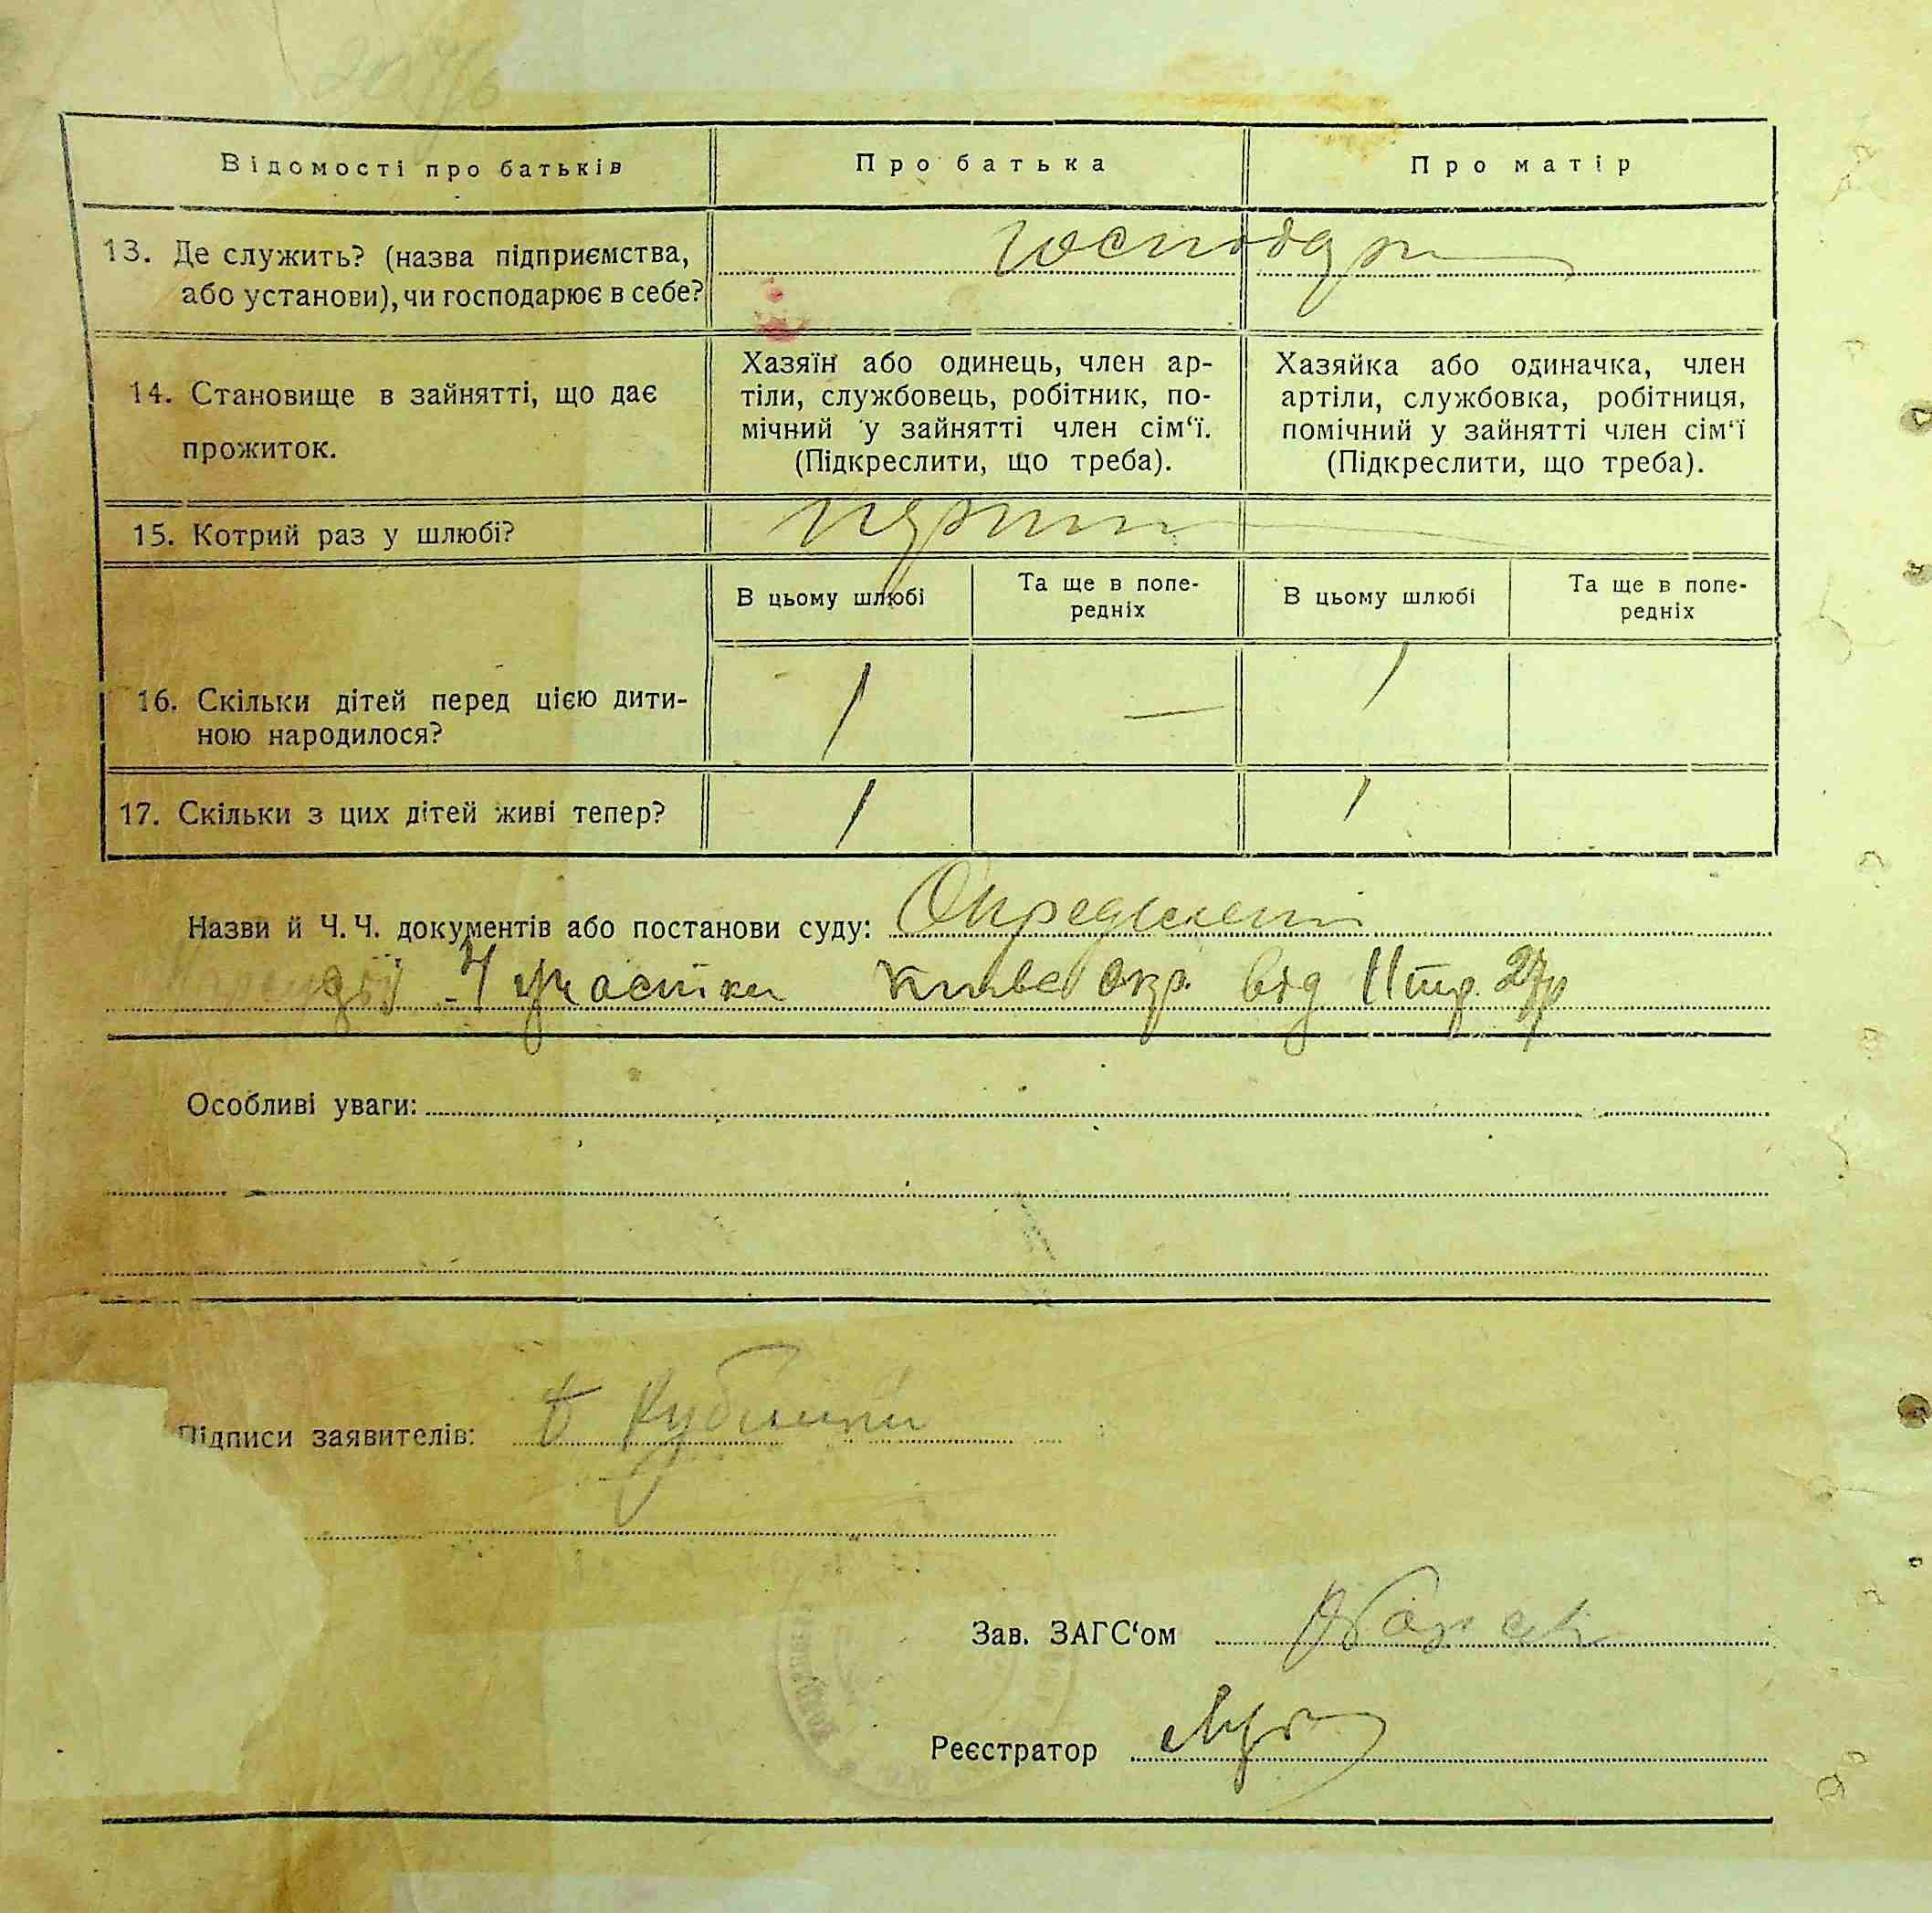 Відомості про батьків
Про батька
Про матір
13. Де служить? (назва підприємства,
або установи), чи господарює в себе?
господар
14. Становище в зайнятті, що дає
прожиток.
Хазяїн або одинець, член ар-
тіли, службовець, робітник, по-
мічний у зайнятті член сім‘ї.
(Підкреслити, що треба).
Хазяйка або одиначка, член
артіли, службовка, робітниця,
помічний у зайнятті член сім‘ї
(Підкреслити, що треба).
15. Котрий раз у шлюбі?
В цьому шлюбі
Та ще в попе-
редніх
В цьому шлюбі
Та ще в попе-
редніх
16. Скільки дітей перед цією дити-
ною народилося?
1
—
1
17. Скільки з цих дітей живі тепер?
1
1
Назви й Ч. Ч. документів або постанови суду:
участка окр. від 11
Особливі уваги:
Підписи заявителів:
Зав. ЗАГС‘ом
Реєстратор